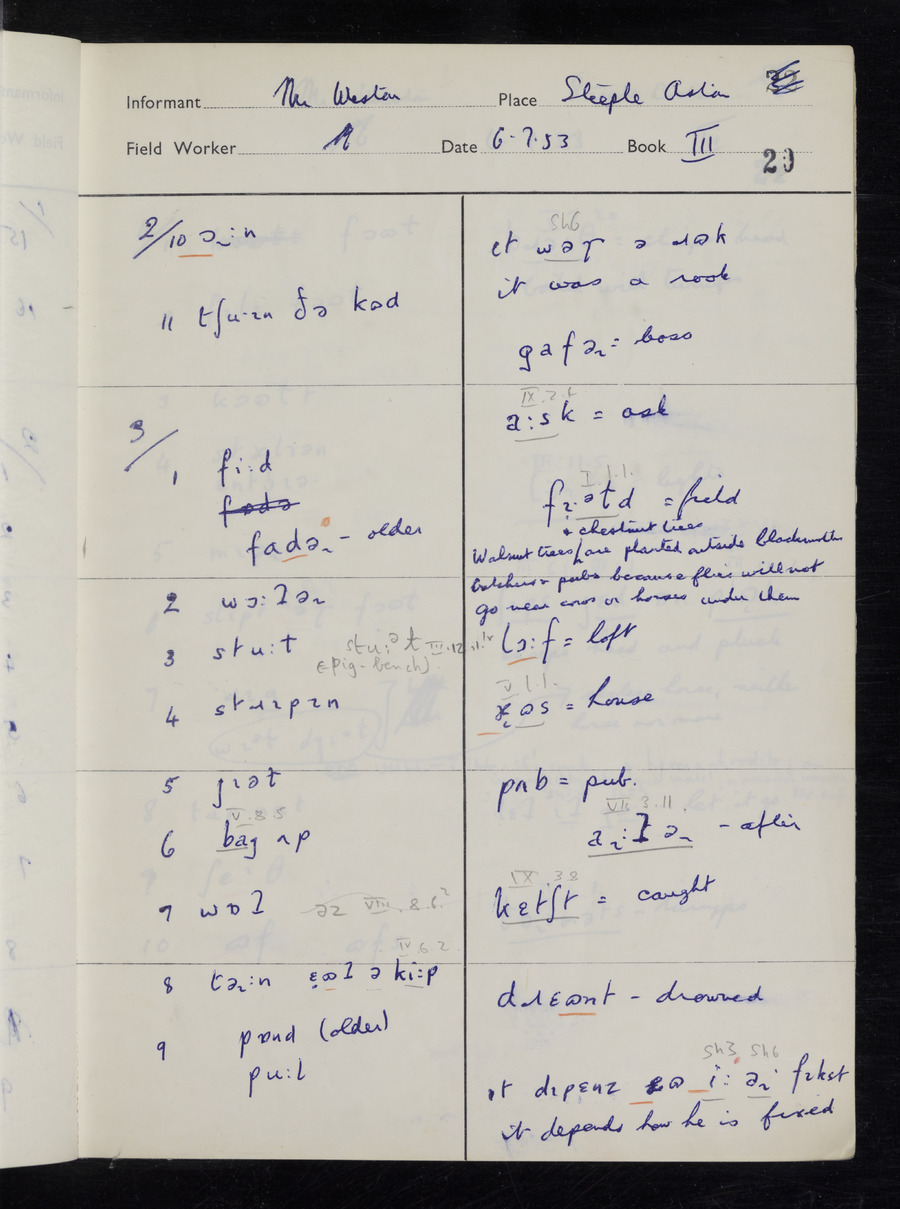 Informant Mr Weston Place Steeple Aston
Field Worker Date 6.7.53 Book III
29
2/10 ɔ˞:n
11 tʃu·ɪn ðə kəd
3/
1 fi:d
fadə˞ - older
2 wɔ:ɫə˞
3 stu:t stu:ət III.12.1.
(pig-bench)
4 stɹɪpɪn
5 ʃɪət
V.8.5
6 bag ʌp
7 wɒɫ VIII.8.6.
IV.6.2
8 tə˞:n ə ki:p
9 pɒnd (older)
pu:l
Sh6
it was a rook
gafə˞ = boss
IX.2.4
a:sk = ask
I.1.1.
= field
& chestnut trees
Walnut trees / are planted outside blacksmiths
butchers & pubs because flies will not
go near cows or horses under them
lɔ:f = loft
V.1.1.
= house
pʌb = pub.
VII.3.11
- after
IX.3.8
kɛtʃt = caught
dɹɛʊnt - drowned
Sh3 Sh6
it depends how he is fixed